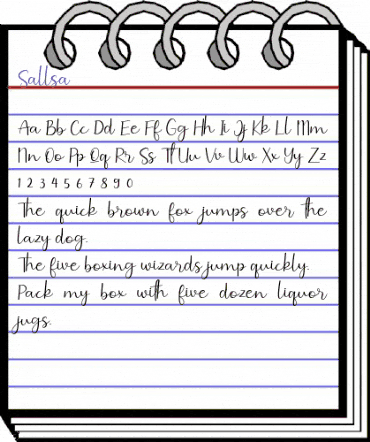 Sallsa
Aa Bb Cc Dd Ee Ff Gg Hh Ii Jj Kk Ll Mm
Nn Oo Pp Qq Rr Ss Tt Uu Vv Ww Xx Yy Zz
1 2 3 4 5 6 7 8 9 0
The quick brown fox jumps over the
lazy dog.
The five boxing wizards jump quickly.
Pack my box with five dozen liquor
jugs.